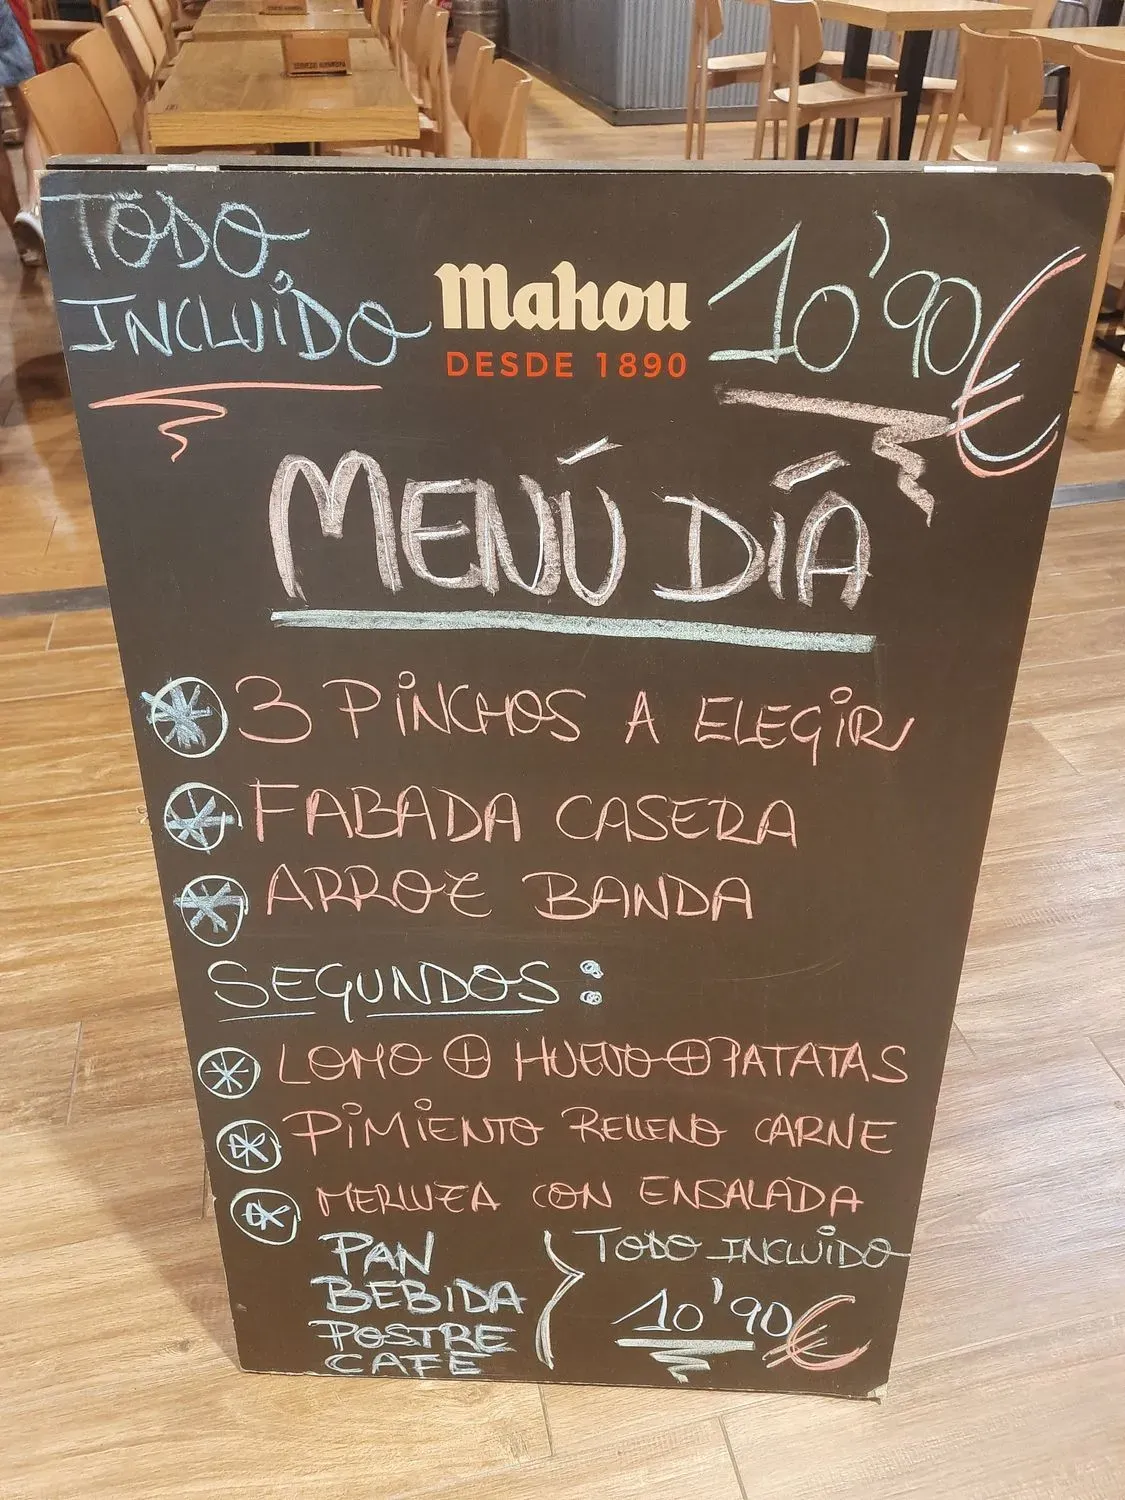 TODO
INCLUÍDO
Mahou
DESDE 1890
10'90€
MENÚ DÍA
3 PINCHOS A ELEGIR
FABADA CASERA
ARROZ BANDA
SEGUNDOS:
LOMO + HUEVO + PATATAS
PIMIENTO RELLENO CARNE
MERLUZA CON ENSALADA
PAN
BEBIDA
POSTRE
CAFE
TODO INCLUIDO
10'90€